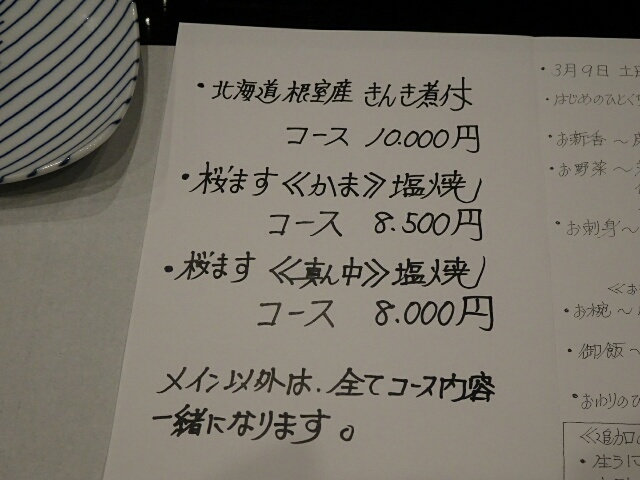 ・北海道 根室産 きんき煮付
コース 10.000円
・桜ます≪かま≫塩焼
コース 8.500円
・桜ます≪真ん中≫塩焼
コース 8.000円
メイン以外は、全てコース内容
一緒になります。
・3月9日 土
・はじめのひとくち
・お新香～
・お野菜～
・お刺身～
≪お
・お椀～
・御飯～
・おわりのひ
≪追加
・生うに